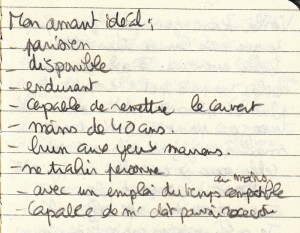 Mon amant idéal :
- parisien
- disponible
- endurant
- capable de remettre le couvert
- moins de 40 ans.
- brun aux yeux marrons.
- ne trahir personne
au moins
- avec un emploi du temps compatible
- capable de m'